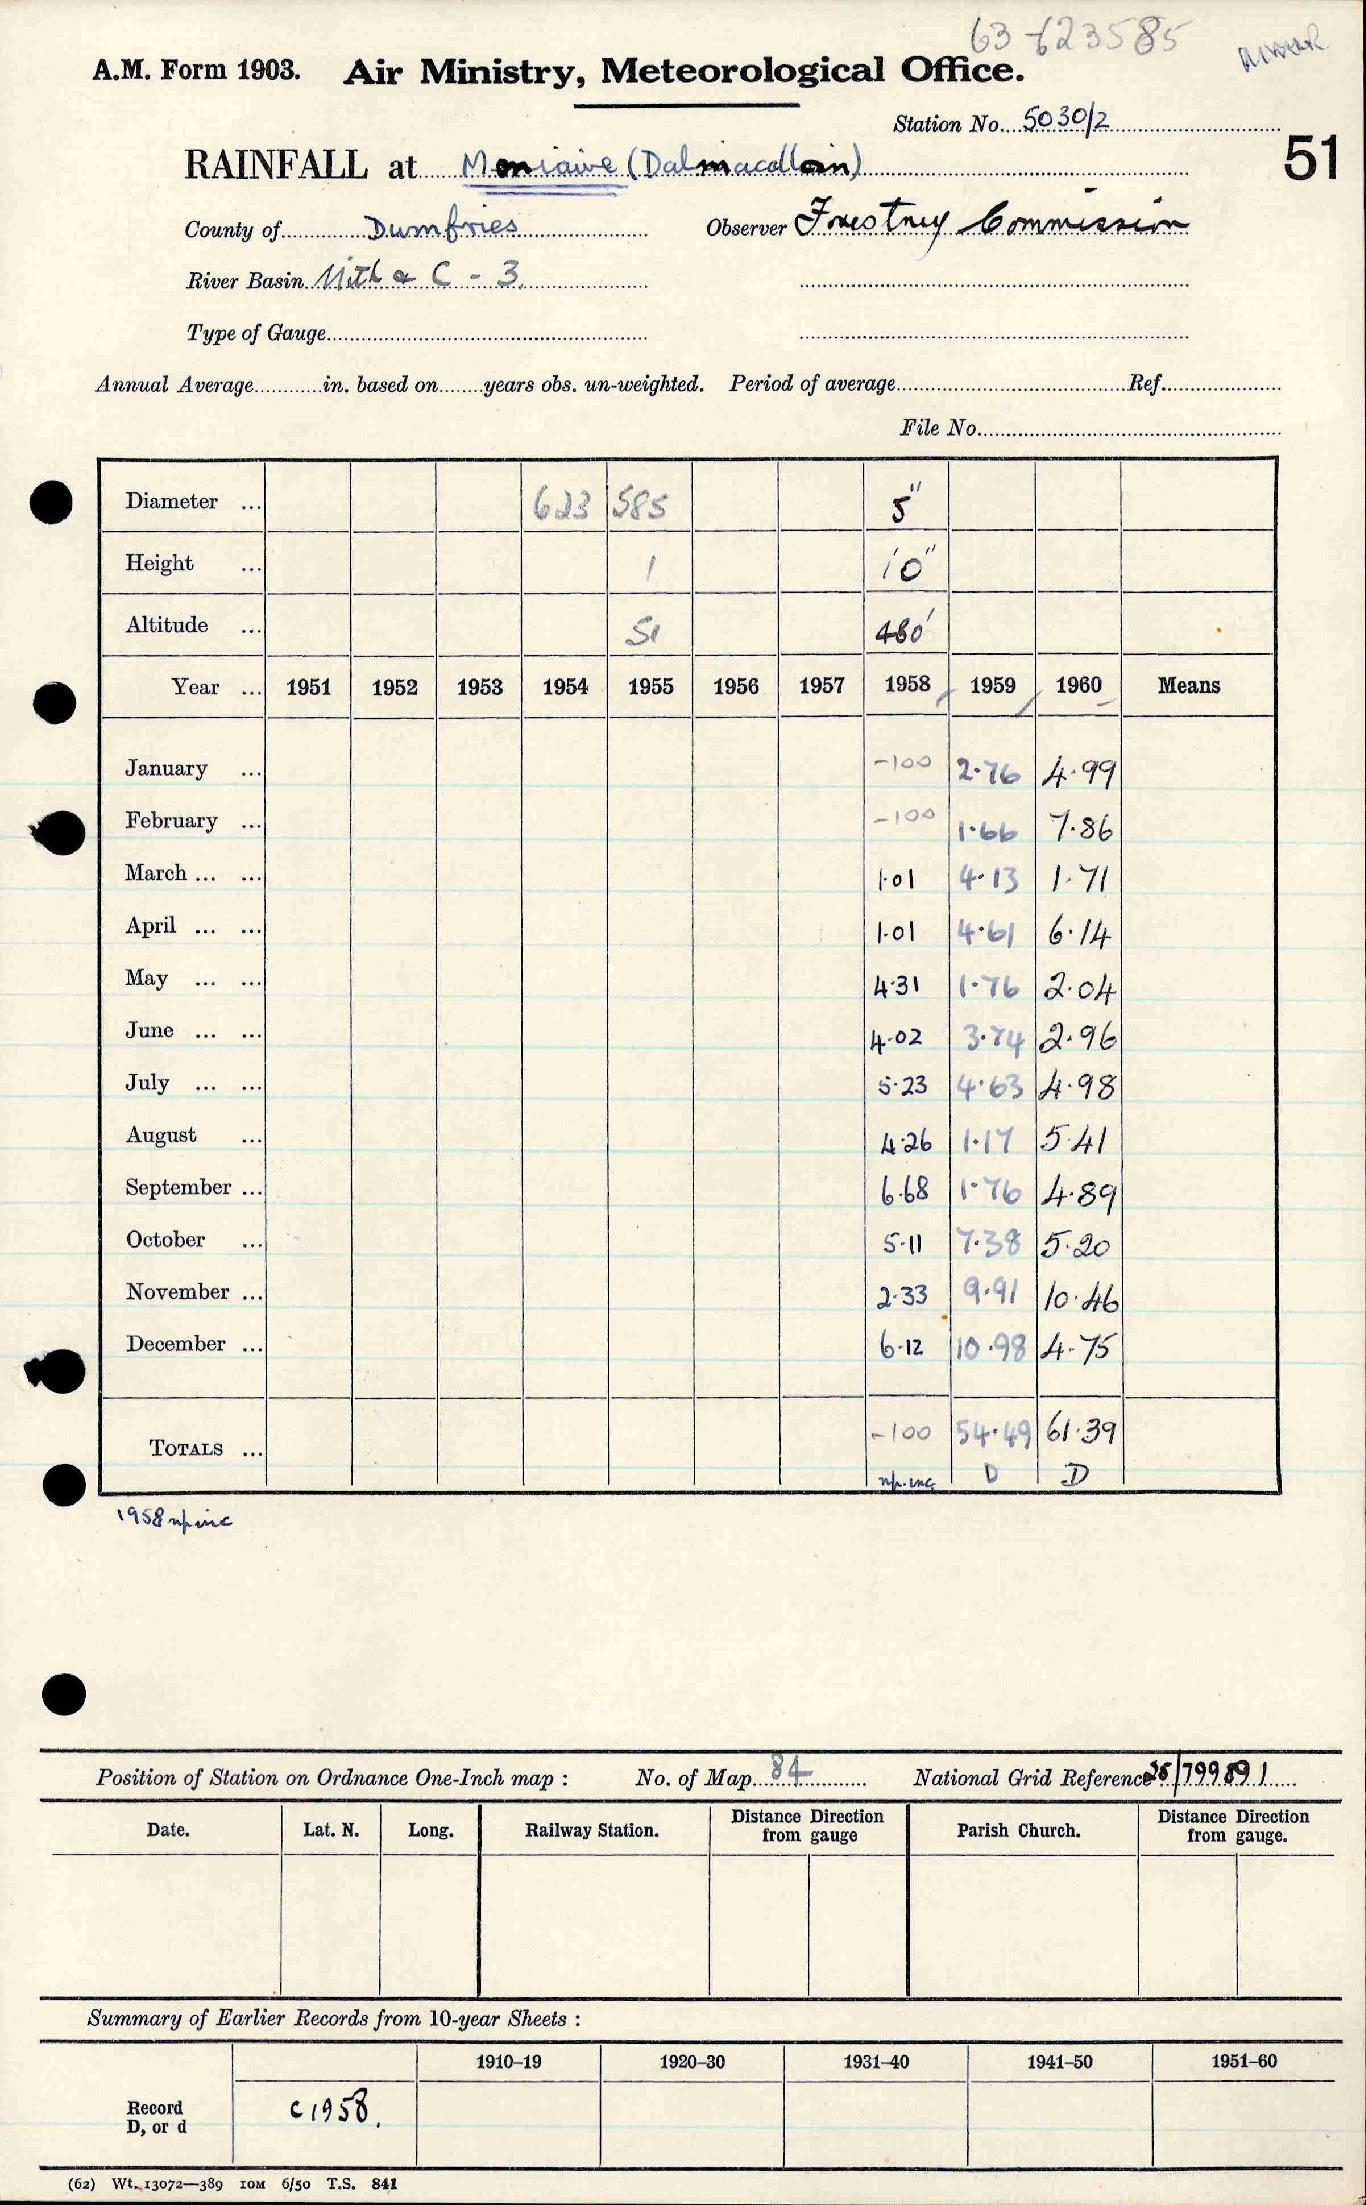 63-623585
A.M. Form 1903. Air Ministry, Meteorological Office.
Station No. 5030/2
51
RAINFALL at Moniaive (Dalmacallan)
County of Dumfries Observer Forestry Commission
River Basin Nith & C - 3.
Type of Gauge
Annual Average in. based on years obs. un-weighted. Period of average Ref.
File No.
Diameter ... 623 585 5"
Height ... 1 10"
Altitude ... 51 480'
Year ... 1951 1952 1953 1954 1955 1956 1957 1958 1959 1960 Means
January ... -100 2.76 4.99
February ... -100 1.66 7.86
March ... ... 1.01 4.13 1.71
April ... ... 1.01 4.61 6.14
May ... ... 4.31 1.76 2.04
June ... ... 4.02 3.74 2.96
July ... ... 5.23 4.63 4.98
August ... 4.26 1.17 5.41
September ... 6.68 1.76 4.89
October ... 5.11 7.38 5.20
November ... 2.33 9.91 10.46
December ... 6.12 10.98 4.75
TOTALS ... -100 54.49 61.39
np.inc D D
1958 np inc
Position of Station on Ordnance One-Inch map : No. of Map 84 National Grid Reference 25/799891
Date. Lat. N. Long. Railway Station. Distance Direction from gauge Parish Church. Distance Direction from gauge.
Summary of Earlier Records from 10-year Sheets :
1910–19 1920–30 1931–40 1941–50 1951–60
Record D, or d c1958.
(62) Wt. 13072—389 10M 6/50 T.S. 841